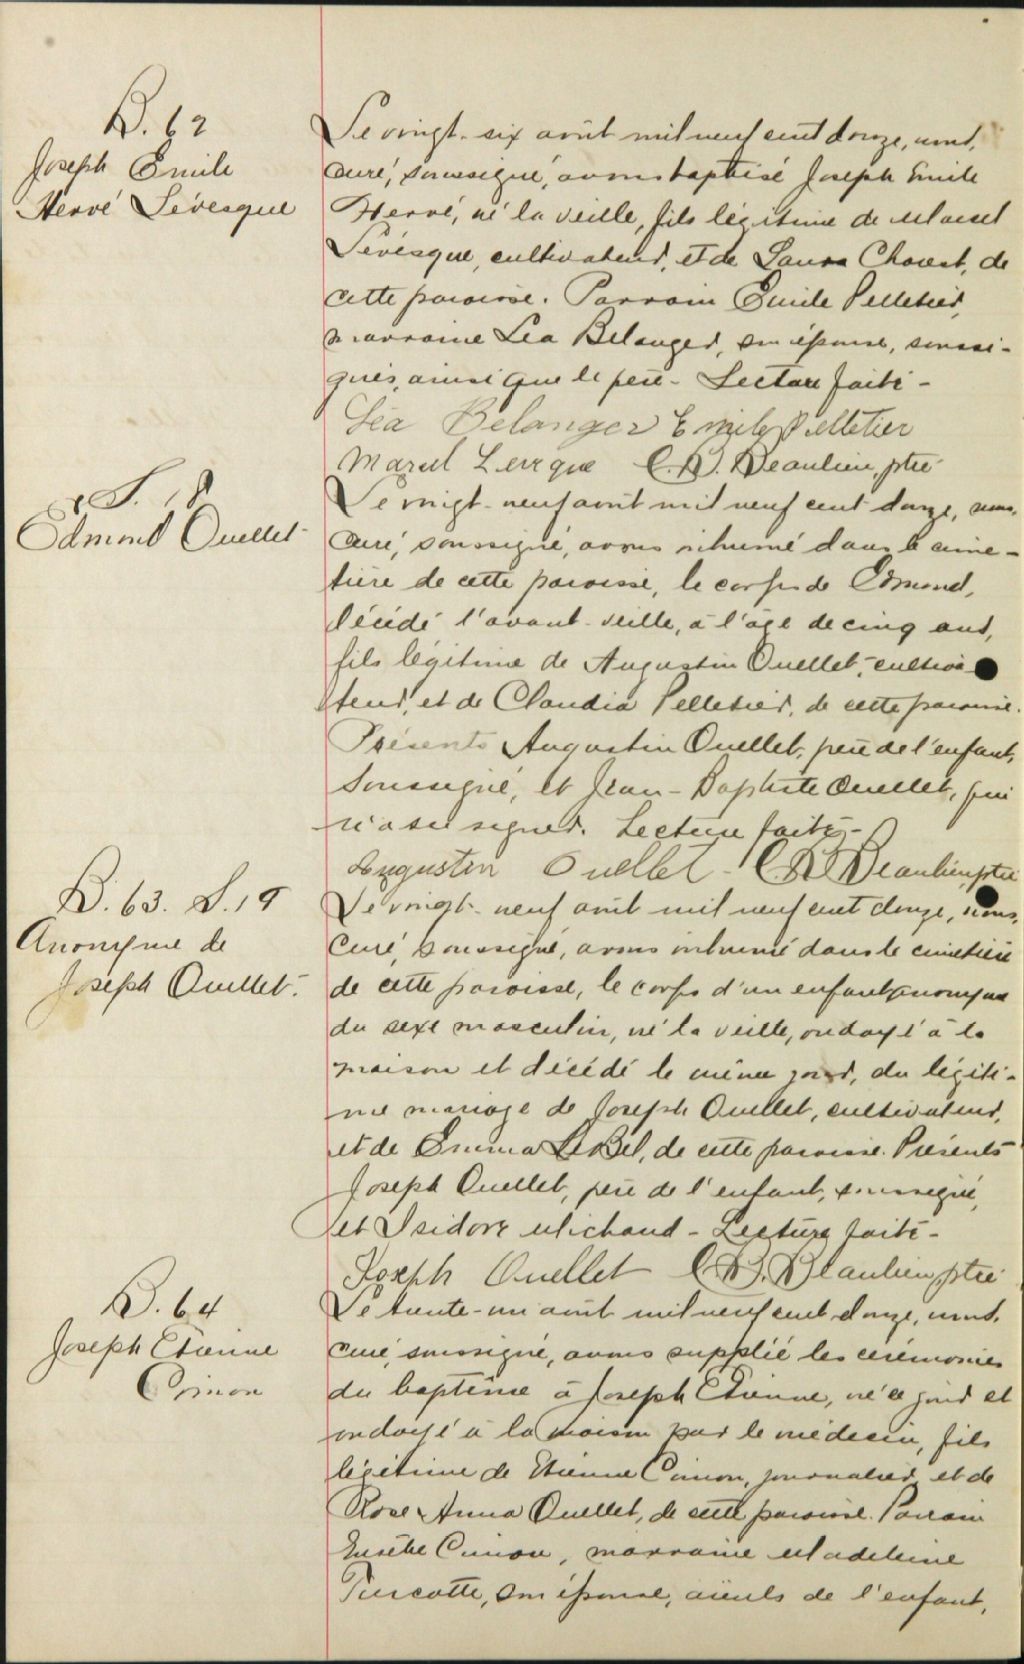 B. 62
Joseph Emile
Hervé Lévesque
Le vingt-six août mil neuf cent douze, nous,
curé, soussigné, avons baptisé Joseph Emile
Hervé, né la veille, fils légitime de Marcel
Lévésque, cultivateur, et de Laura Chouest, de
cette paroisse. Parrain Emile Pelletier,
marraine Léa Belanger, son épouse, soussi-
gnés, ainsi que le père - Lecture faite -
Léa Belanger Emile Pelletier
Marcel Levesque C. B. Beaulieu, ptre
S. 18
Edmond Ouellet
Le vingt-neuf août mil neuf cent douze, nous,
curé, soussigné, avons inhumé dans le cime-
tière de cette paroisse, le corps de Edmond,
décédé l'avant-veille, à l'âge de cinq ans,
fils légitime de Augustin Ouellet, cultiva-
teur, et de Claudia Pelletier, de cette paroisse.
Présents Augustin Ouellet, père de l'enfant,
soussigné, et Jean-Baptiste Ouellet, qui
n'a su signer. Lecture faite -
Augustin Ouellet - C. B. Beaulieu, ptre
B. 63. S. 19
Anonyme de
Joseph Ouellet.
Le vingt-neuf août mil neuf cent douze, nous,
curé, soussigné, avons inhumé dans le cimetière
de cette paroisse, le corps d'un enfant anonyme
du sexe masculin, né la veille, ondoyé à la
maison et décédé le même jour, du légiti-
me mariage de Joseph Ouellet, cultivateur,
et de Emma LeBel, de cette paroisse. Présents
Joseph Ouellet, père de l'enfant, soussigné,
et Isidore Michaud - Lecture faite -
Joseph Ouellet C. B. Beaulieu, ptre
B. 64
Joseph Etienne
Cimon
Le trente-un août mil neuf cent douze, nous,
curé, soussigné, avons supplié les cérémonies
du baptême à Joseph Etienne, né ce jour et
ondoyé à la maison par le médecin, fils
légitime de Etienne Cimon, journalier, et de
Rose Anna Ouellet, de cette paroisse. Parrain
Eusèbe Cimon, marraine Madeleine
Turcotte, son épouse, aïeuls de l'enfant,